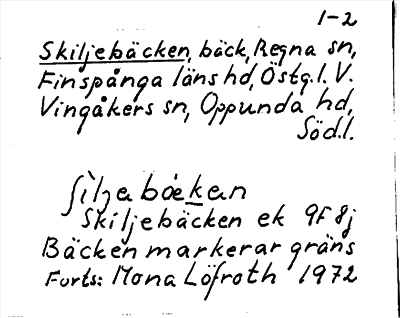 1-2
Skiljebäcken, bäck, Regna sn,
Finspånga läns hd, Östg.l. V.
Vingåkers sn, Oppunda hd,
Söd.l.
ʃìljabækan
Skiljebäcken ek 9F8j
Bäcken markerar gräns
Forts: Mona Löfroth 1972